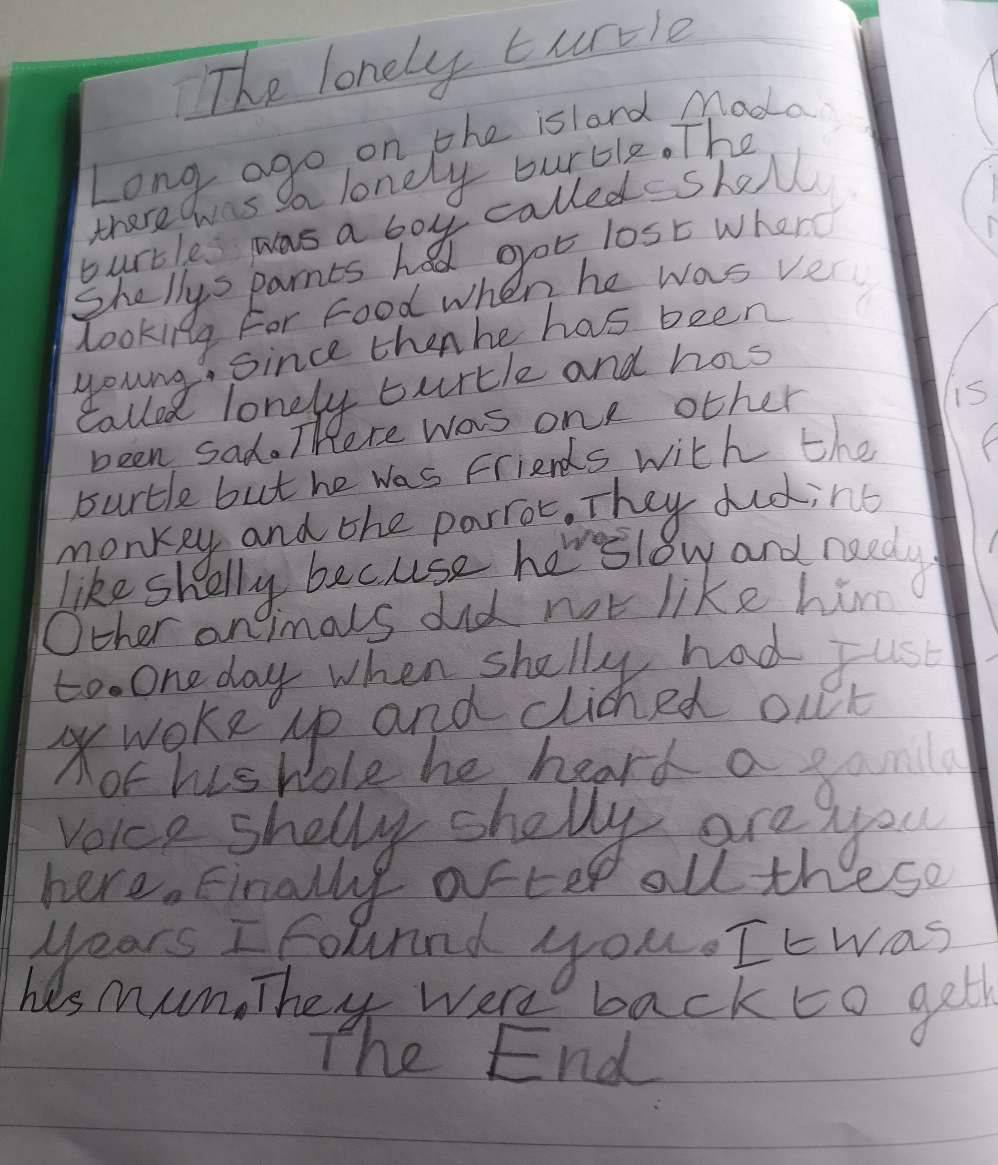 The lonely turtle
Long ago on the island Mada
there was a lonely turtle. The
turtles was a boy called Shelly.
Shellys parnts had got lost when
looking For Food when he was very
young. Since then he has been
called lonely turtle and has
been sad. There was one other
turtle but he was Friends with the
monkey and the parrot. They did,nt
like shelly becuse he was slow and needy.
Other animals did not like him
to. One day when shelly had Just
woke up and climed out
of his hole he heard a
voice shelly shelly are you
here. Finally after all these
years I founnd you. It was
his mum. They were back to geth
The End
is